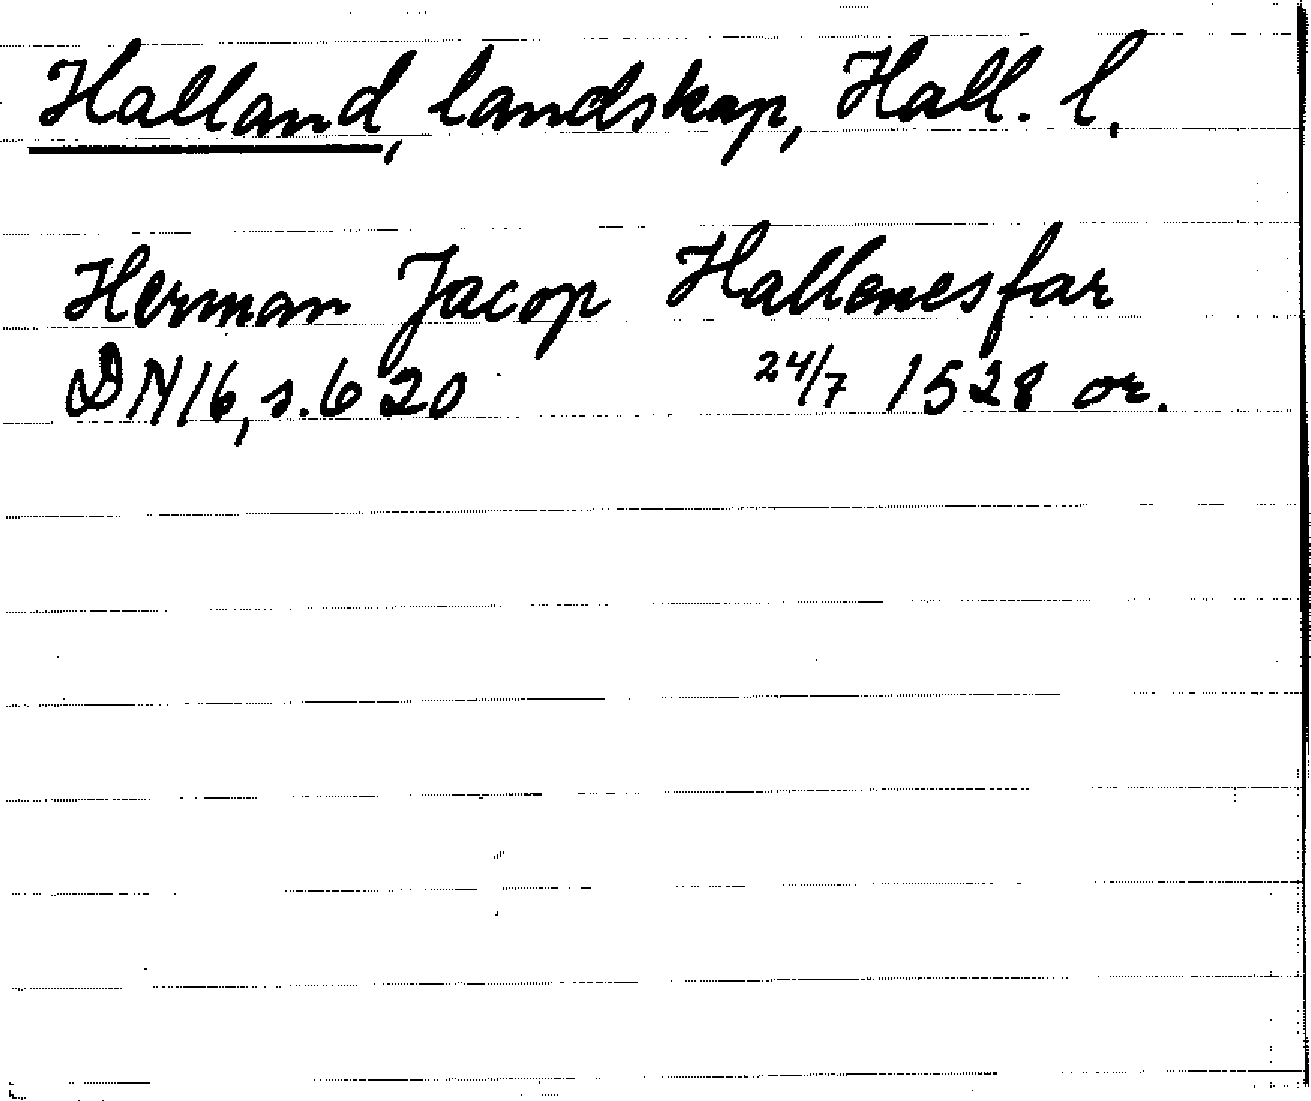 Halland, landskap, Hall. l.
Herman Jacop Hallenesfar
DN16, s. 620 24/7 1528 or.